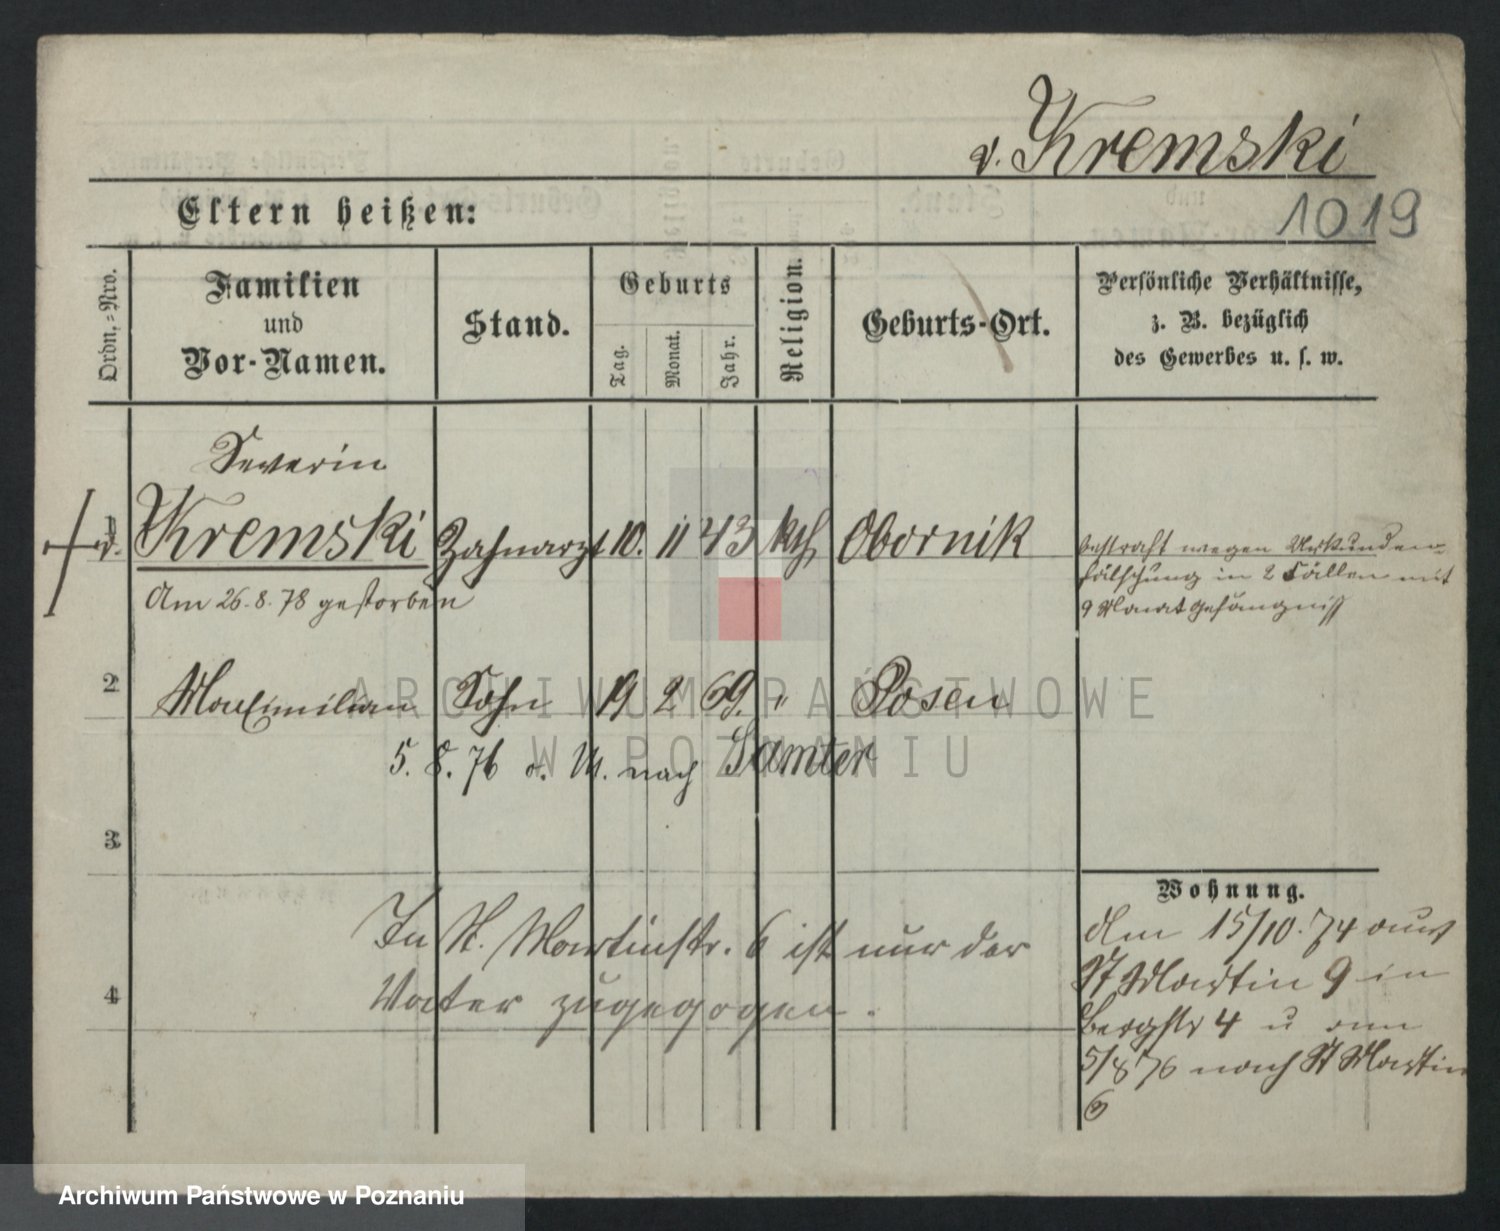 v. Kremski
Eltern heißen:
1019
Ordn.-Nro.
Familien
und
Vor-Namen.
Stand.
Geburts
Tag.
Monat.
Jahr.
Religion.
Geburts-Ort.
Persönliche Verhältnisse,
z. B. bezüglich
des Gewerbes u. s. w.
Severin
1 v. Kremski Zahnarzt 10. 11 43 kth Obornik
Am 26.8.78 gestorben
bestraft wegen Urkunden-
fälschung in 2 Fällen mit
9 Monat Gefängniß
2 Maximilian Sohn 19 2 69. " Posen
5. 8. 76 v. M. nach Samter
3
In St. Martinstr. 6 ist nur der
4 Vater zugezogen.
Wohnung.
Am 15/10. 74 aus
St Martin 9 in
Bergstr 4 u am
5/8 76 nach St Martin
6
ARCHIWUM PAŃSTWOWE
W POZNANIU
Archiwum Państwowe w Poznaniu